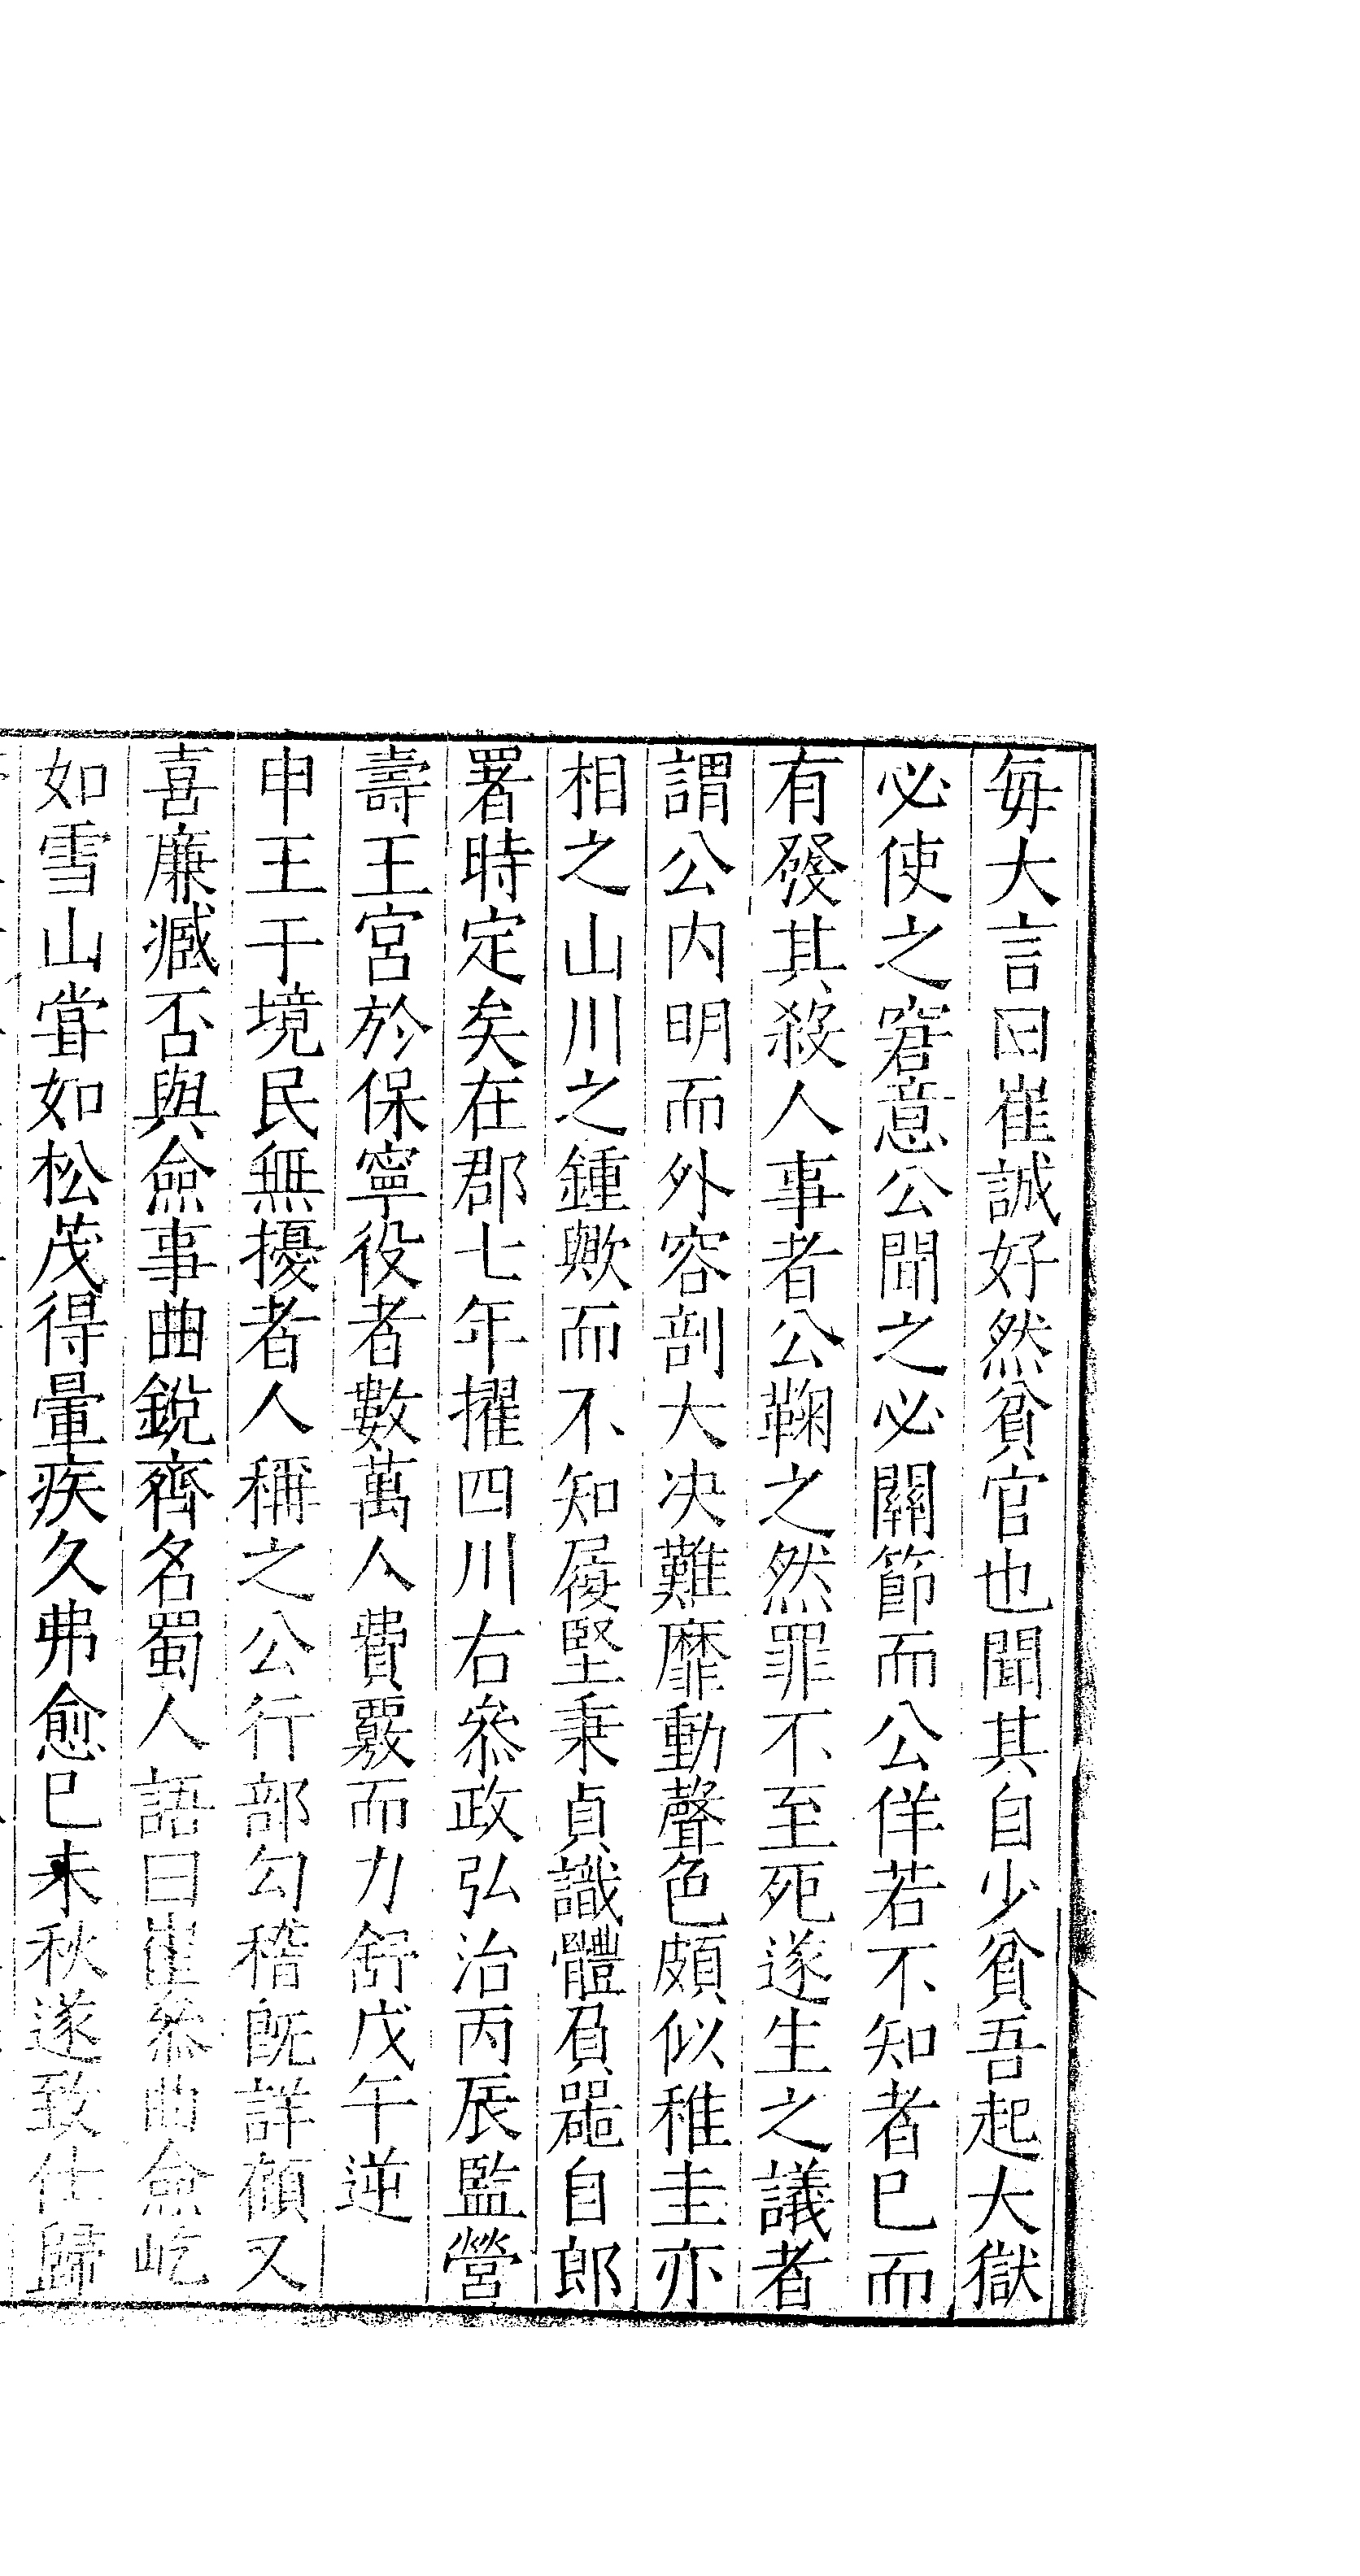 毎大言曰崔誠好然貧官也聞其自少貧吾起大獄
必使之窘意公聞之必關節而公佯若不知者巳而
有發其殺人事者公鞠之然罪不至死遂生之議者
謂公内明而外容剖大决難靡動聲色頗似稚圭亦
相之山川之鍾歟而不知履堅秉貞識體負噐自郎
署時定矣在郡七年擢四川右叅政弘治丙辰監營
壽王宮於保寧役者數萬人費覈而力舒戊午逆
申王于境民無擾者人稱之公行部勾稽旣詳顧又
喜廉臧否與僉事曲銳齊名蜀人語曰崔叅曲僉屹
如雪山嵩如松茂得暈疾久弗愈巳未秋遂致仕歸